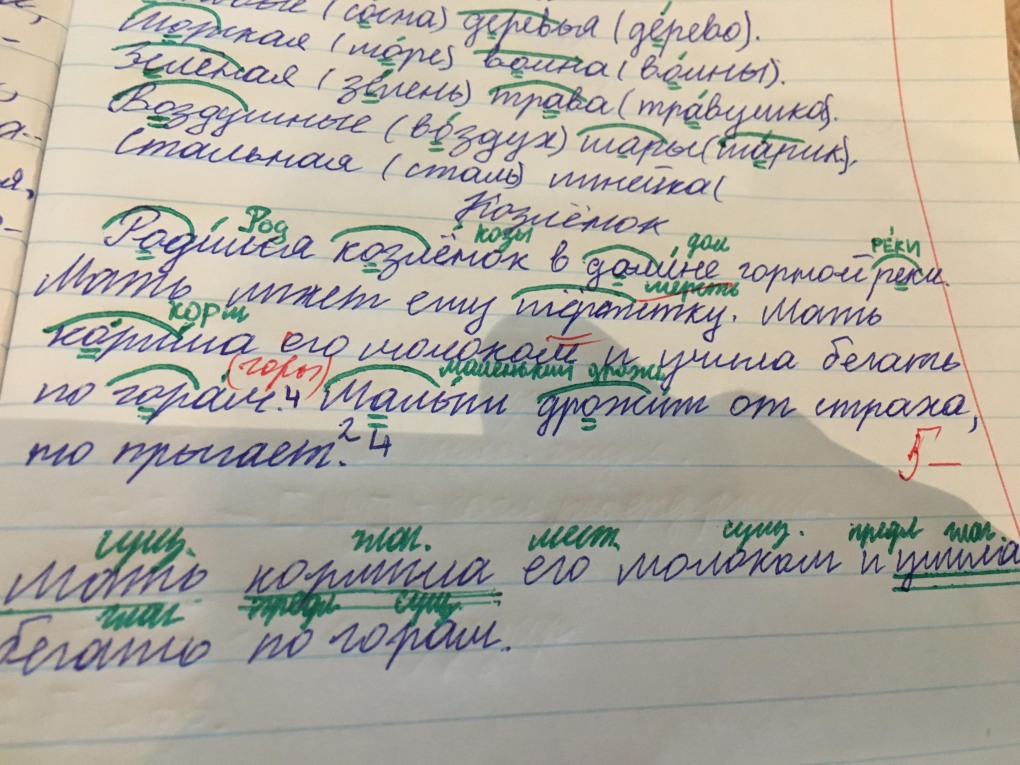 (сосна) деревья (дерево).
Морская (море) волна (волны).
Зелёная (зелень) трава (травушка).
Воздушные (воздух) шары (шарик).
Стальная (сталь) линейка (
Козлёнок
Род козы дол РЕКИ
Родился козлёнок в долине горной реки.
шерсть
Мать лижет ему шёрстку. Мать
корм
кормила его молоком и учила бегать
(горы) маленький дрожь
по горам.4 Малыш дрожит от страха,
то прыгает.2 4
5-
сущ. глаг. мест сущ. предл глаг.
Мать кормила его молоком и учила
глаг предл сущ.
бегать по горам.